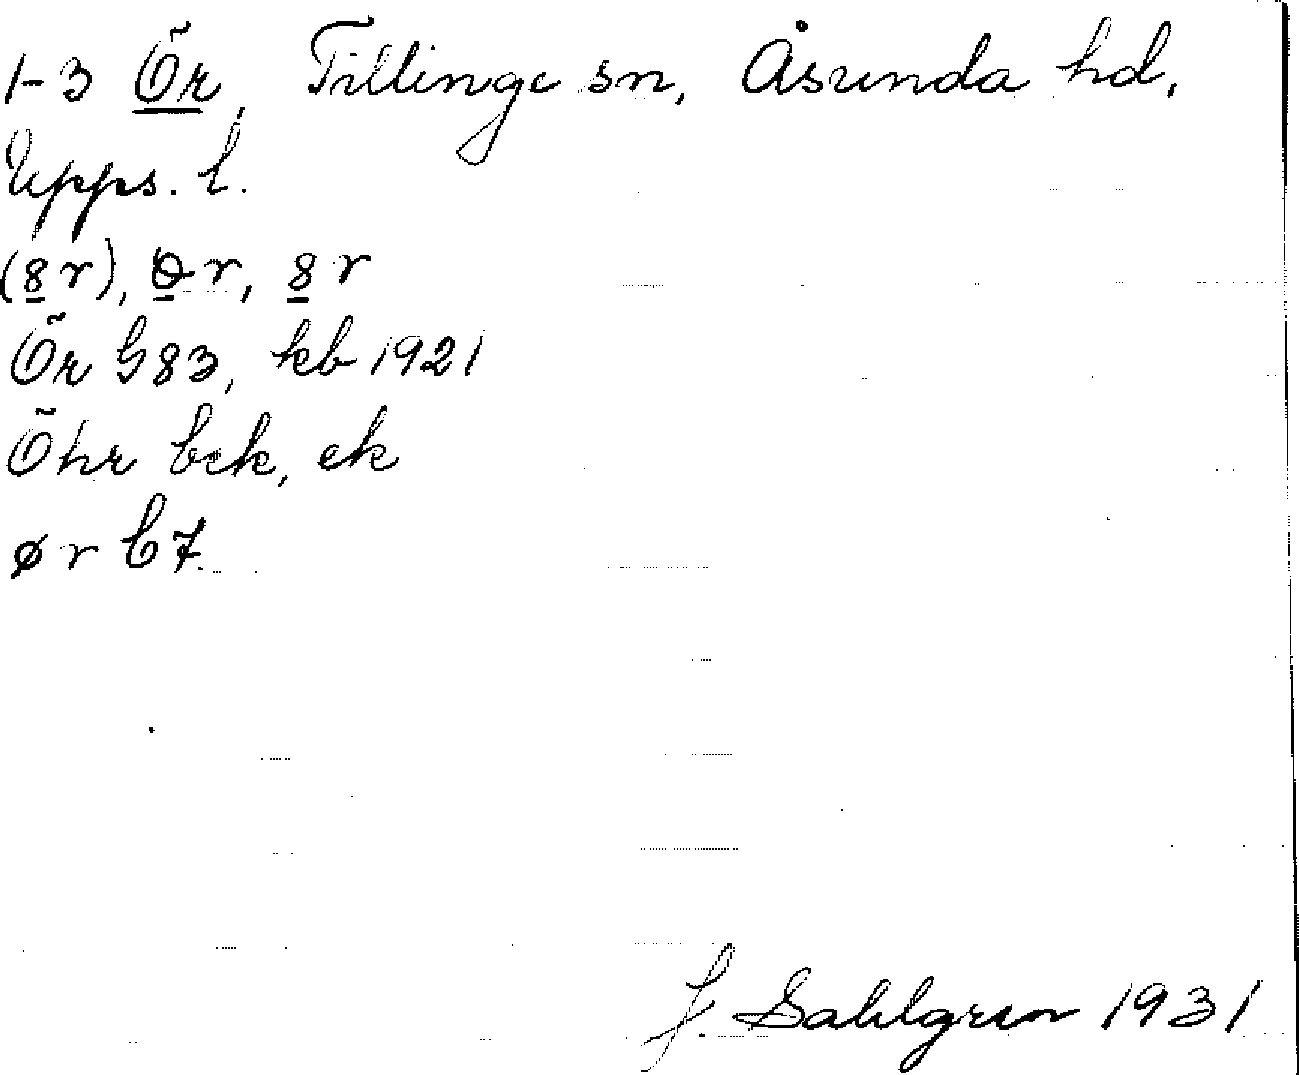 1-3 Ör, Tillinge sn, Åsunda hd,
Upps. l.
(8r), ɵr, 8r
Ör G83, kb 1921
Öhr bek, ek
ør b7.
J. Sahlgren 1931